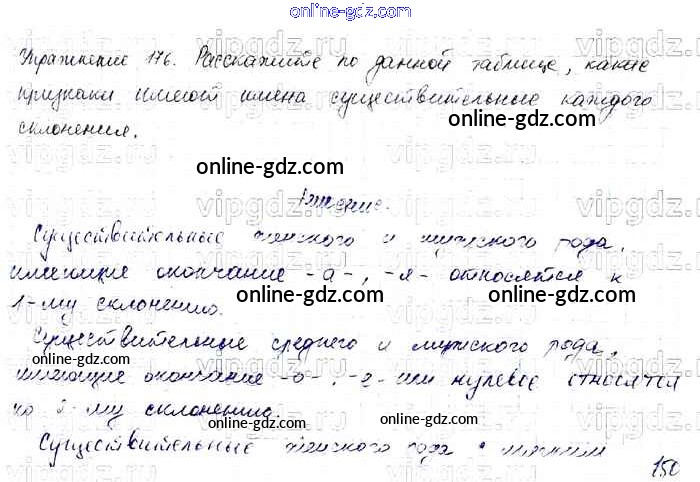 online-gdz.com
Упражнение 176. Расскажите по данной таблице, какие
признаки имеют имена существительные каждого
склонения.
online-gdz.com
online-gdz.com
Решение.
Существительные женского и мужского рода,
имеющие окончание -а-, -я- относятся к
1-му склонению.
online-gdz.com
Существительные среднего и мужского рода,
имеющие окончание -о-, -е- или нулевое относятся
online-gdz.com
ко 2-му склонению.
online-gdz.com
online-gdz.com
Существительные женского рода с
150